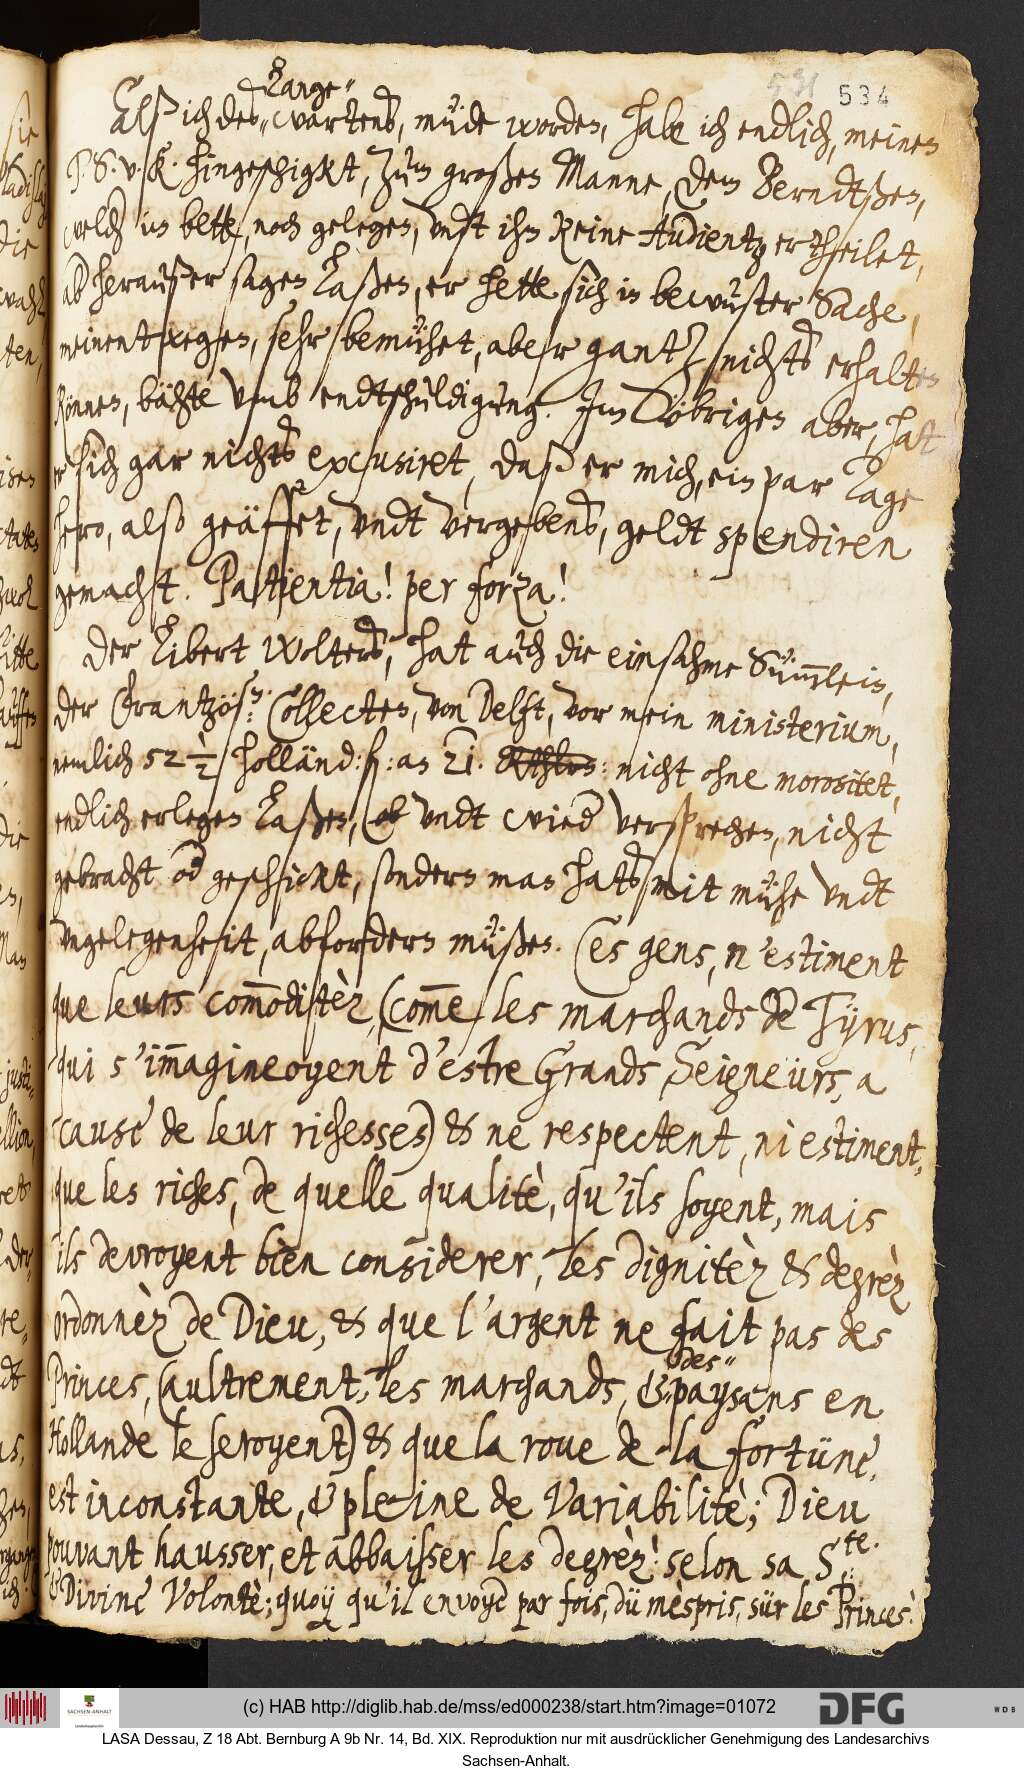 531 534
lange"
Alß ich des, wartens, müde worden, habe ich endlich, meinen
T. S. v. K. hingeschigkt, zum großen Manne, dem Berndtßen,
welch im bette, noch gelegen, undt ihm keine Audientz ertheilet,
ab heraußer sagen laßen, er hette sich in bewuster Sache,
meinentwegen, sehr bemühet, aber gantz nichts erhalten
können, bähte umb endtschuldigung. Im übrigen aber, hat
er sich gar nichts excusiret, daß er mich, ein par Tage
hero, also geäffet, undt vergebens, geldt spendiren
gemacht. Patientia! per forza!
Der Libert Wolters, hat auch die einsahme Sümlein,
der Frantzös: Collecten, von Delft, vor mein ministerium,
nemlich 52 1/2 holländ: f: an 21. Rthlrs: nicht ohne morositet,
endlich erlegen laßen, (ob undt wied versprechen, nicht
gebracht od geschickt, sondern man hats mit mühe undt
ungelegenheit, abfordern müßen. Ces gens, n'estiment
que leurs com̄oditèz, (com̄e les marchands de Tÿrus,
qui s'im̄agineoyent d'estre Grands Seigneurs, a
cause de leur richesses) & ne respectent, ni estiment,
que les riches, de quelle qualitè, qu'ils soyent, mais
ils devroyent bien considerer, les dignitèz & degrèz
ordonnèz de Dieu, & que l'argent ne fait pas des
des"
Princes, (aultrement, les marchands, & paysans en
Hollande le seroyent) & que la roue de la fortüne,
est inconstante, & pleine de Variabilitè; Dieu
pouvant hausser, et abbaisser les degrèz! selon sa S.te.
& Divine Volontè; quoy qu'il envoye par fois, dü mèspris, sür les Princes!
(c) HAB http://diglib.hab.de/mss/ed000238/start.htm?image=01072
SACHSEN-ANHALT
DFG
WDB
LASA Dessau, Z 18 Abt. Bernburg A 9b Nr. 14, Bd. XIX. Reproduktion nur mit ausdrücklicher Genehmigung des Landesarchivs
Sachsen-Anhalt.